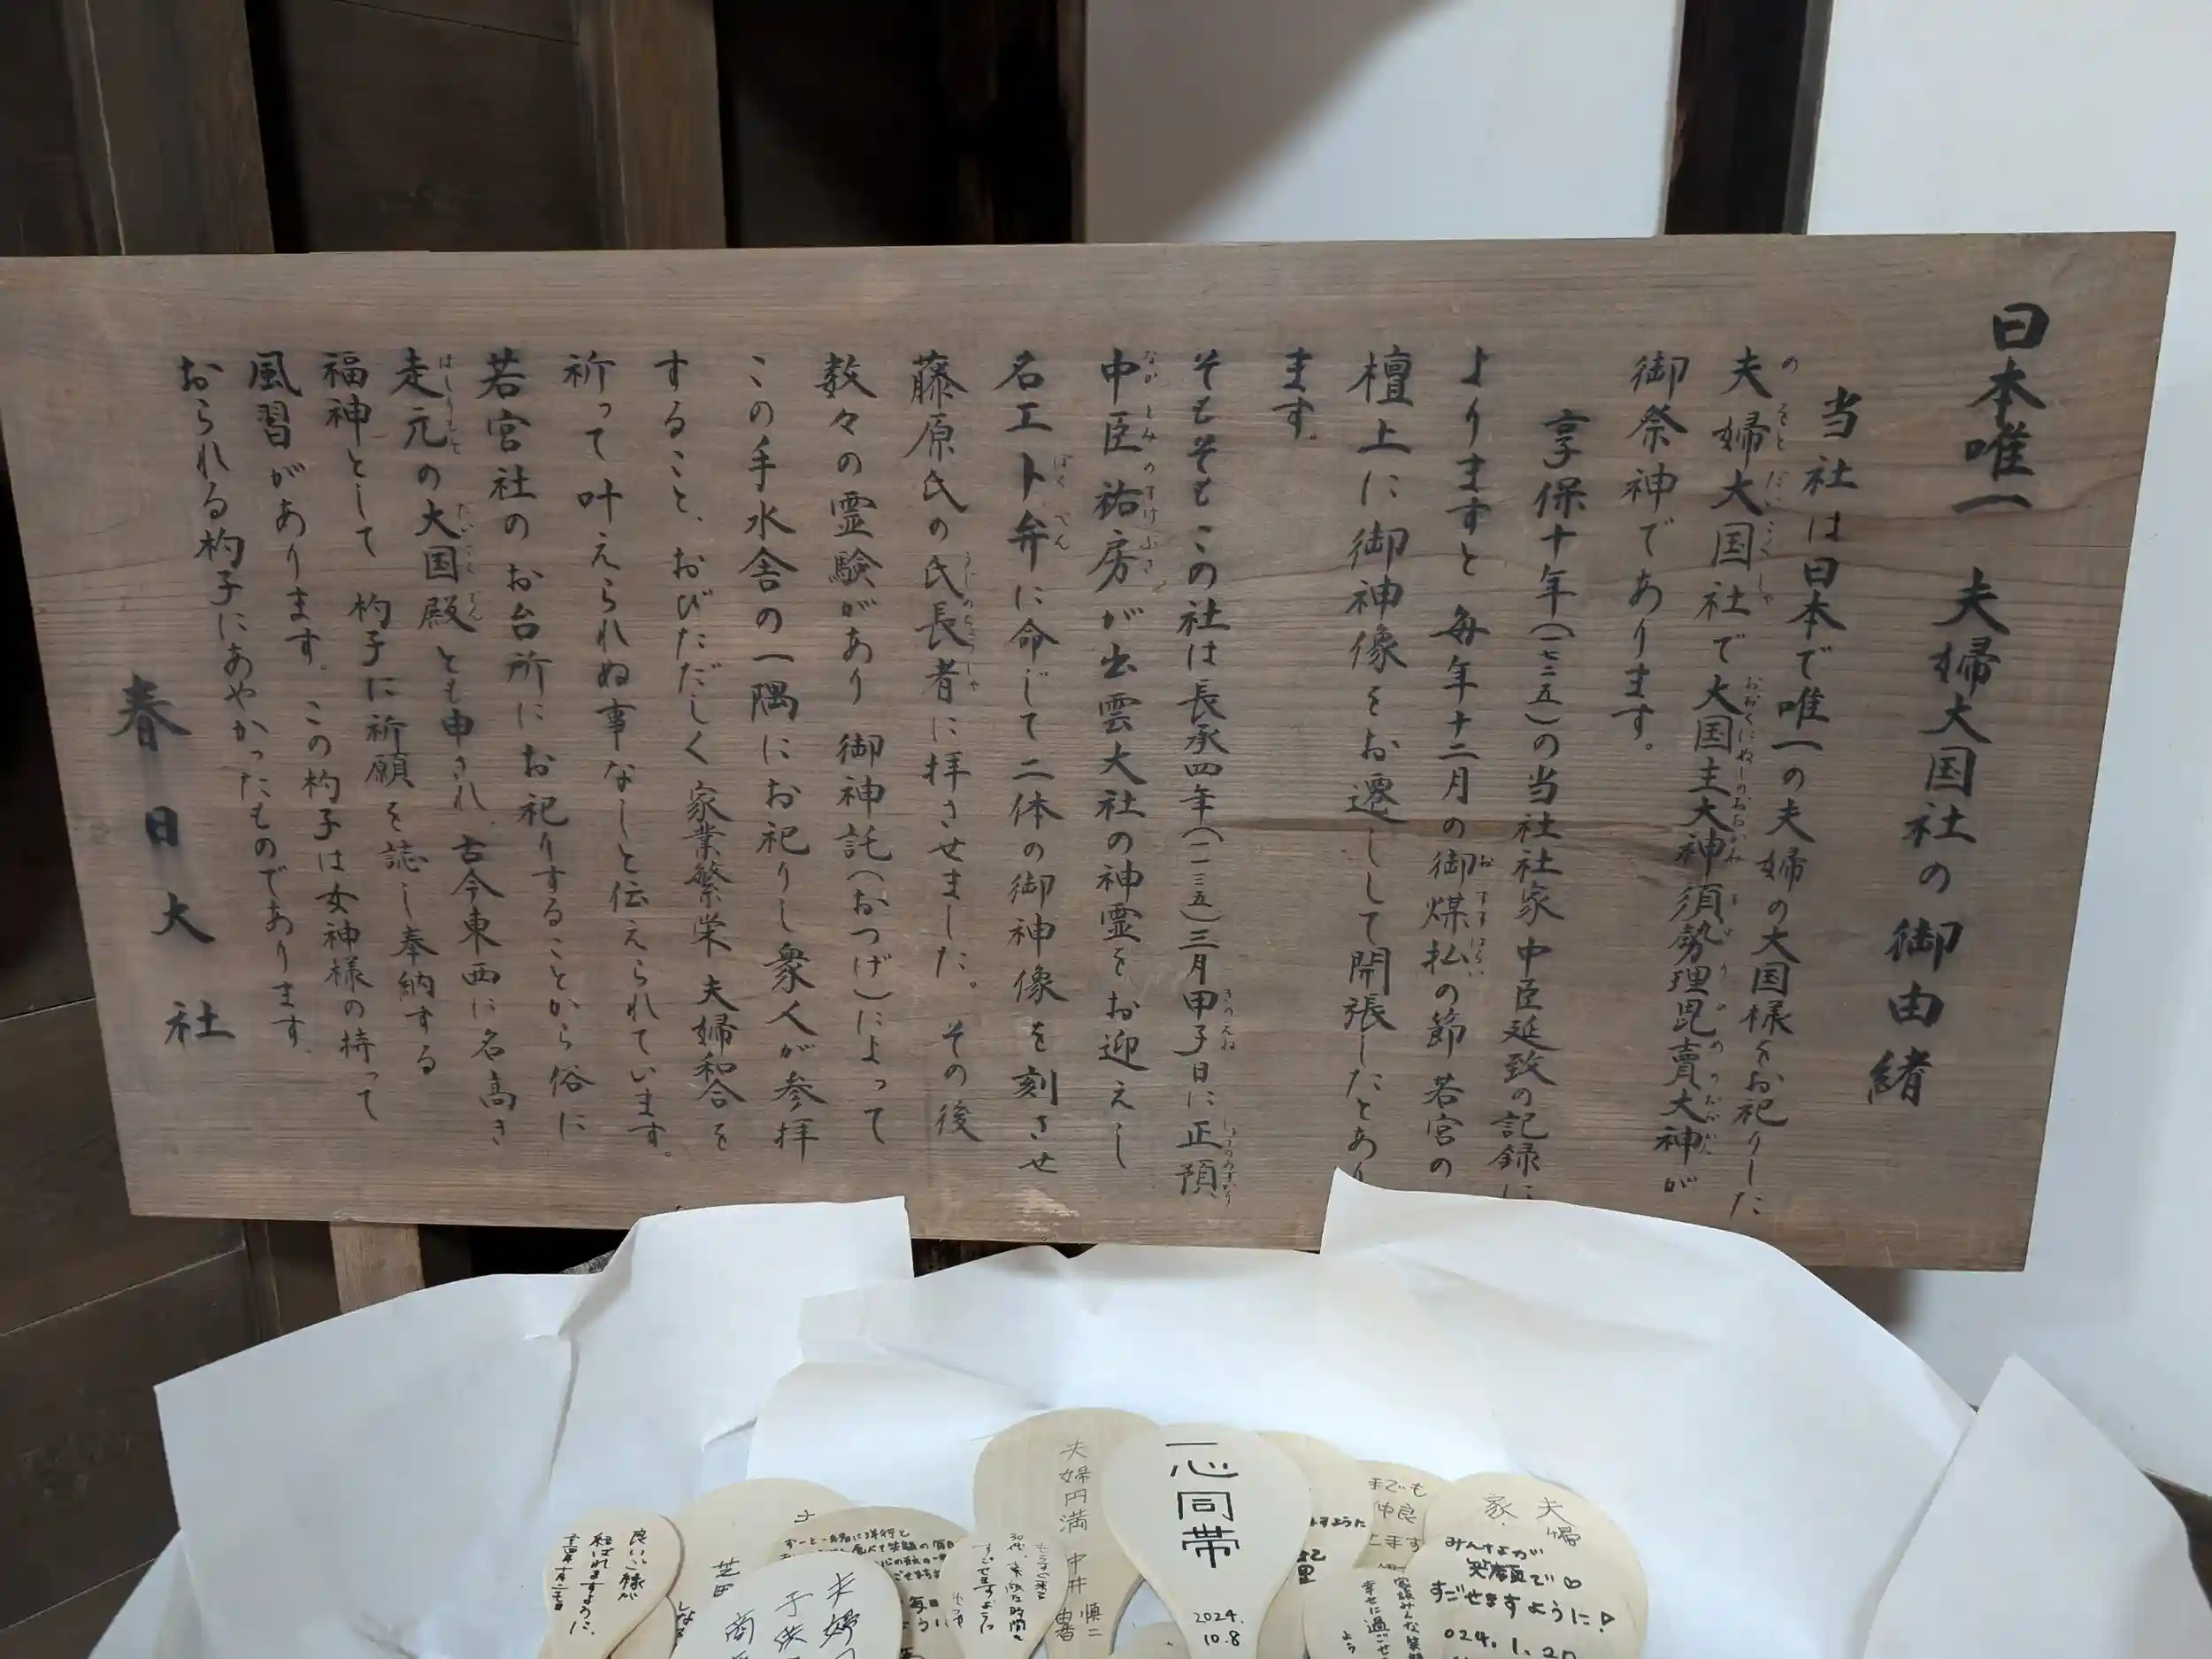 日本唯一 夫婦大国社の御由緒
当社は日本で唯一の夫婦の大国様をお祀りした
夫婦大国社で大国主大神須勢理毘売大神が
御祭神であります。
享保十年(一七二五)の当社社家中臣延致の記録に
よりますと毎年十二月の御煤払の節 若宮の
檀上に御神像をお遷しして開張したとあり
ます。
そもそもこの社は長承四年(一一三五)三月甲子日に正預
中臣祐房が出雲大社の神霊をお迎えし
名工卜弁に命じて二体の御神像を刻させ
藤原氏の氏長者に拝させました。その後
数々の霊験があり御神託(おつげ)によって
この手水舎の一隅にお祀りし衆人が参拝
すること、おびただしく家業繁栄 夫婦和合を
祈って叶えられぬ事なしと伝えられています。
若宮社のお台所にお祀りすることから俗に
走元の大国殿とも申され、古今東西に名高き
福神として杓子に祈願を誌し奉納する
風習があります。この杓子は女神様の持って
おられる杓子にあやかったものであります。
春日大社
夫婦円満
中井
一心同帯
2024.
10.8
夫婦
家
みんなが
笑顔で
すごせますように!
024.1.20
良いご縁が
結ばれますように。
芝田